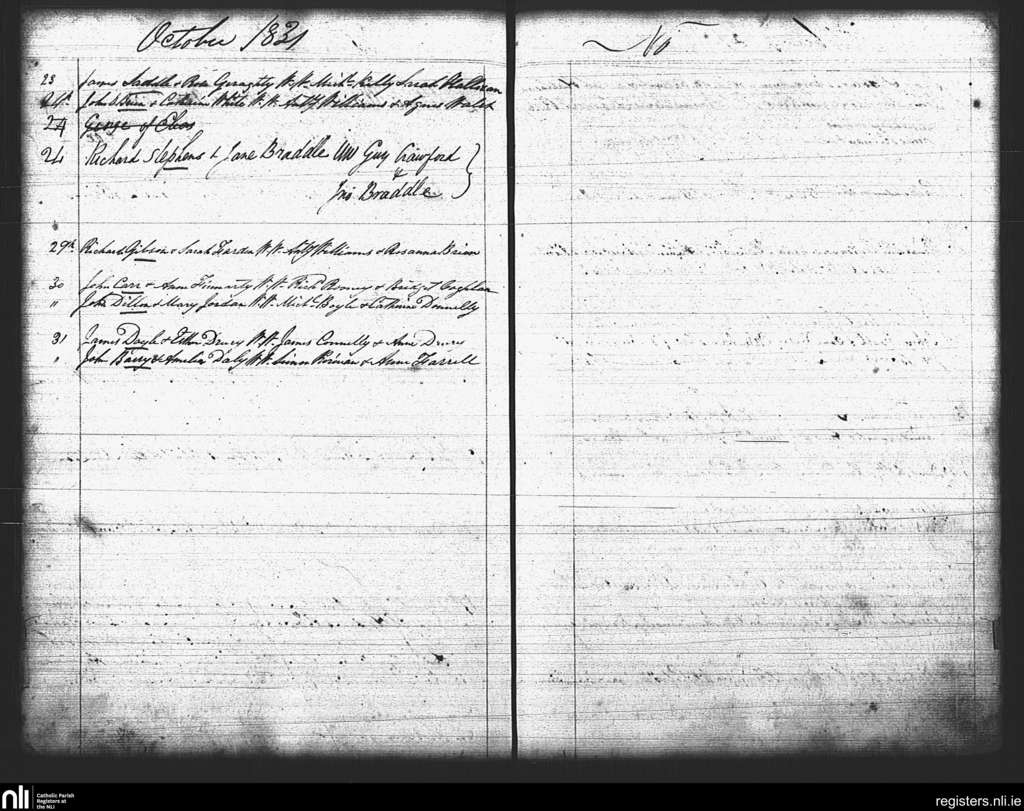 October 1831
No
23 James Saddle & Rose Geraghty W.W. Michl Kelly Sarah Halligan
24th John & Catherine White W.W. Anthy Williams & Agnes Walsh
24 George of Chas
24 Richard Stephens & Jane Braddle WW Guy Crawford
& Jno Braddle
29th Richard Gibson & Sarah W.W. Anthy Williams & Rosanna Brien
30 John Carr & Anne W.W. Richd & Bridget Coghlan
" John Dillon & Mary Jordan W.W. Michl Boyle & Catherine Donnelly
31 James Doyle & Esther Drury W.W. James Connelly & Anne Drury
" John Barry & Amelia Daly W.W. & Anne Farrell
nli
Catholic Parish
Registers at
the NLI
registers.nli.ie